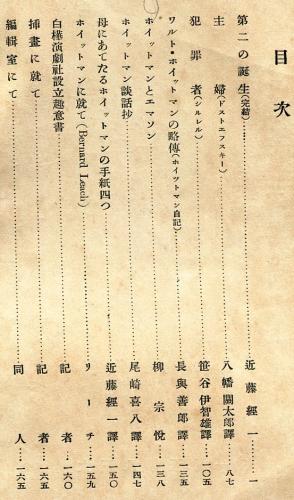 目次
第二の誕生(完結)……近藤經一…一
主婦(ドストエフスキー)……八幡關太郎譯…八七
犯罪者(シルレル)……笹谷伊智雄譯…一〇五
ワルト・ホイットマンの略傳(ホイットマン自記)……長與善郎譯…一三五
ホイットマンとエマソン……柳宗悅…一三八
ホイットマン談話抄……尾崎喜八譯…一四七
母にあてたるホイットマンの手紙四つ……近藤經一譯…一五〇
ホイットマンに就て(Bernard Leach)……リーチ…一五九
白樺演劇社設立趣意書……記者…一六〇
挿畫に就て……記者…一六五
編輯室にて……同人…一六五